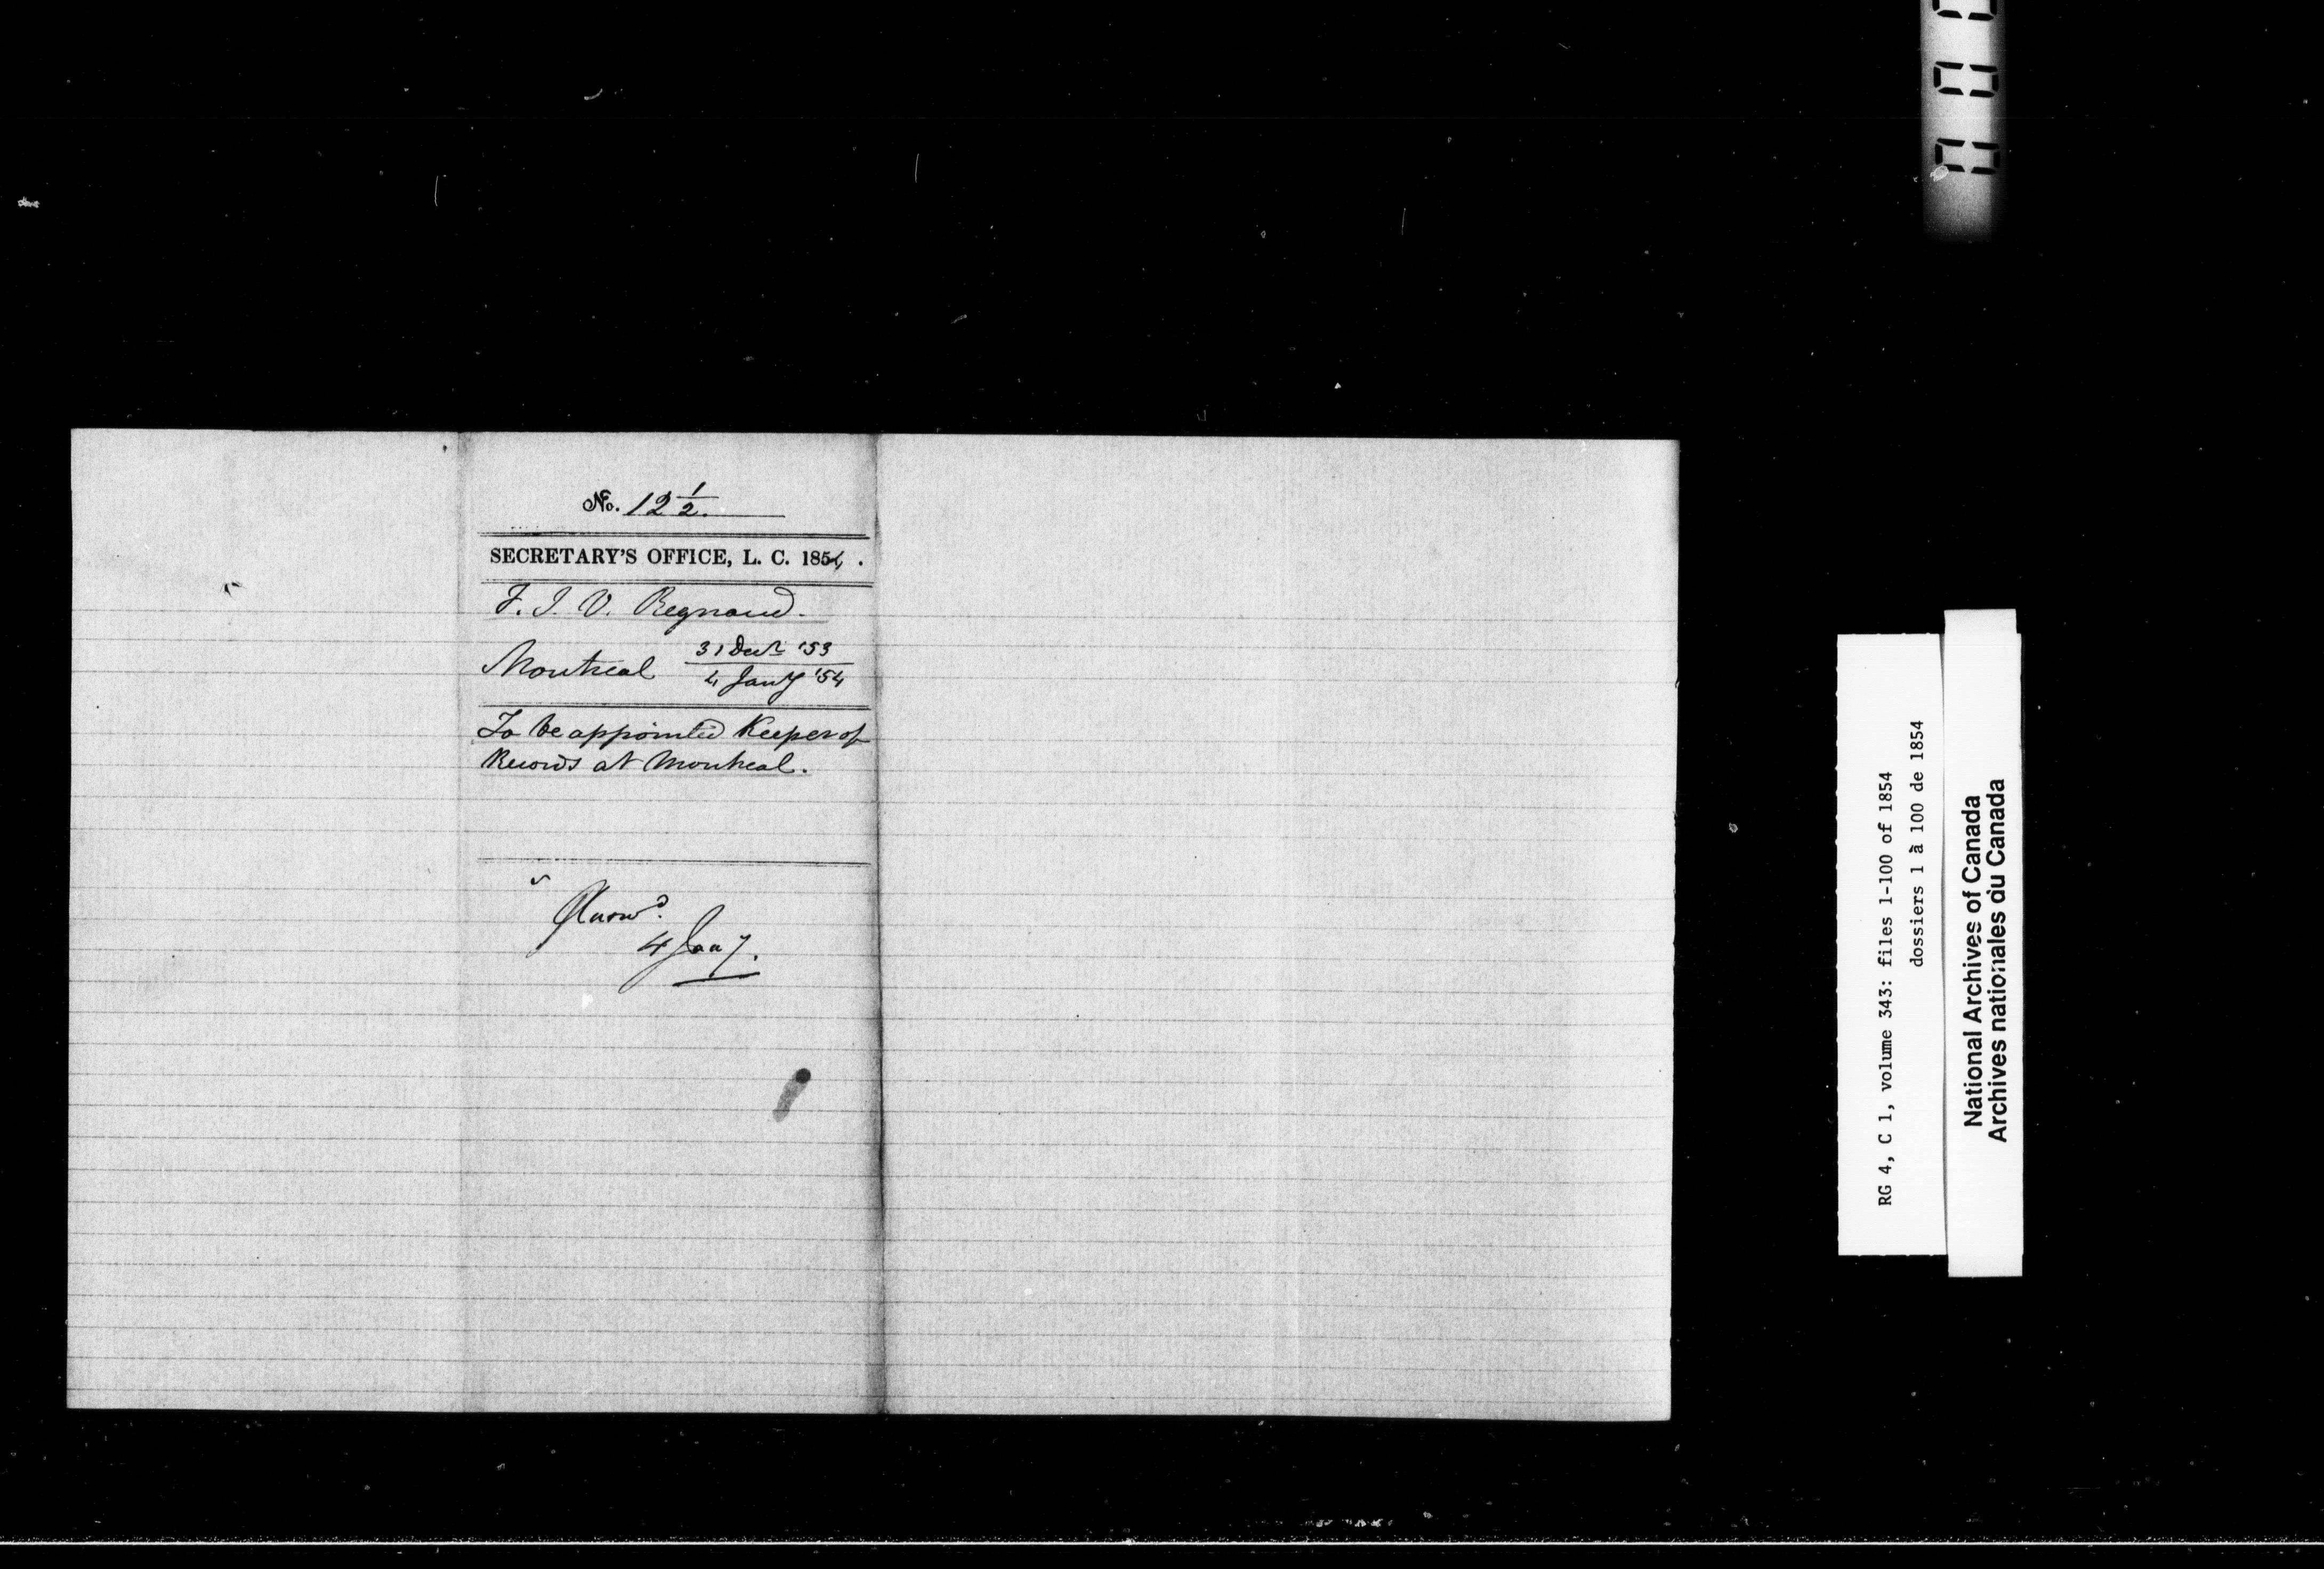 No. 12 1/2.
SECRETARY'S OFFICE, L. C. 1854.
F. J. V. Regnaud.
Montreal 31 Decr '53
4 Jany '54
To be appointed Keeper of
Records at Montreal.
Answd.
4 Jany.
RG 4, C 1, volume 343: files 1-100 of 1854
dossiers 1 à 100 de 1854
National Archives of Canada
Archives nationales du Canada
000